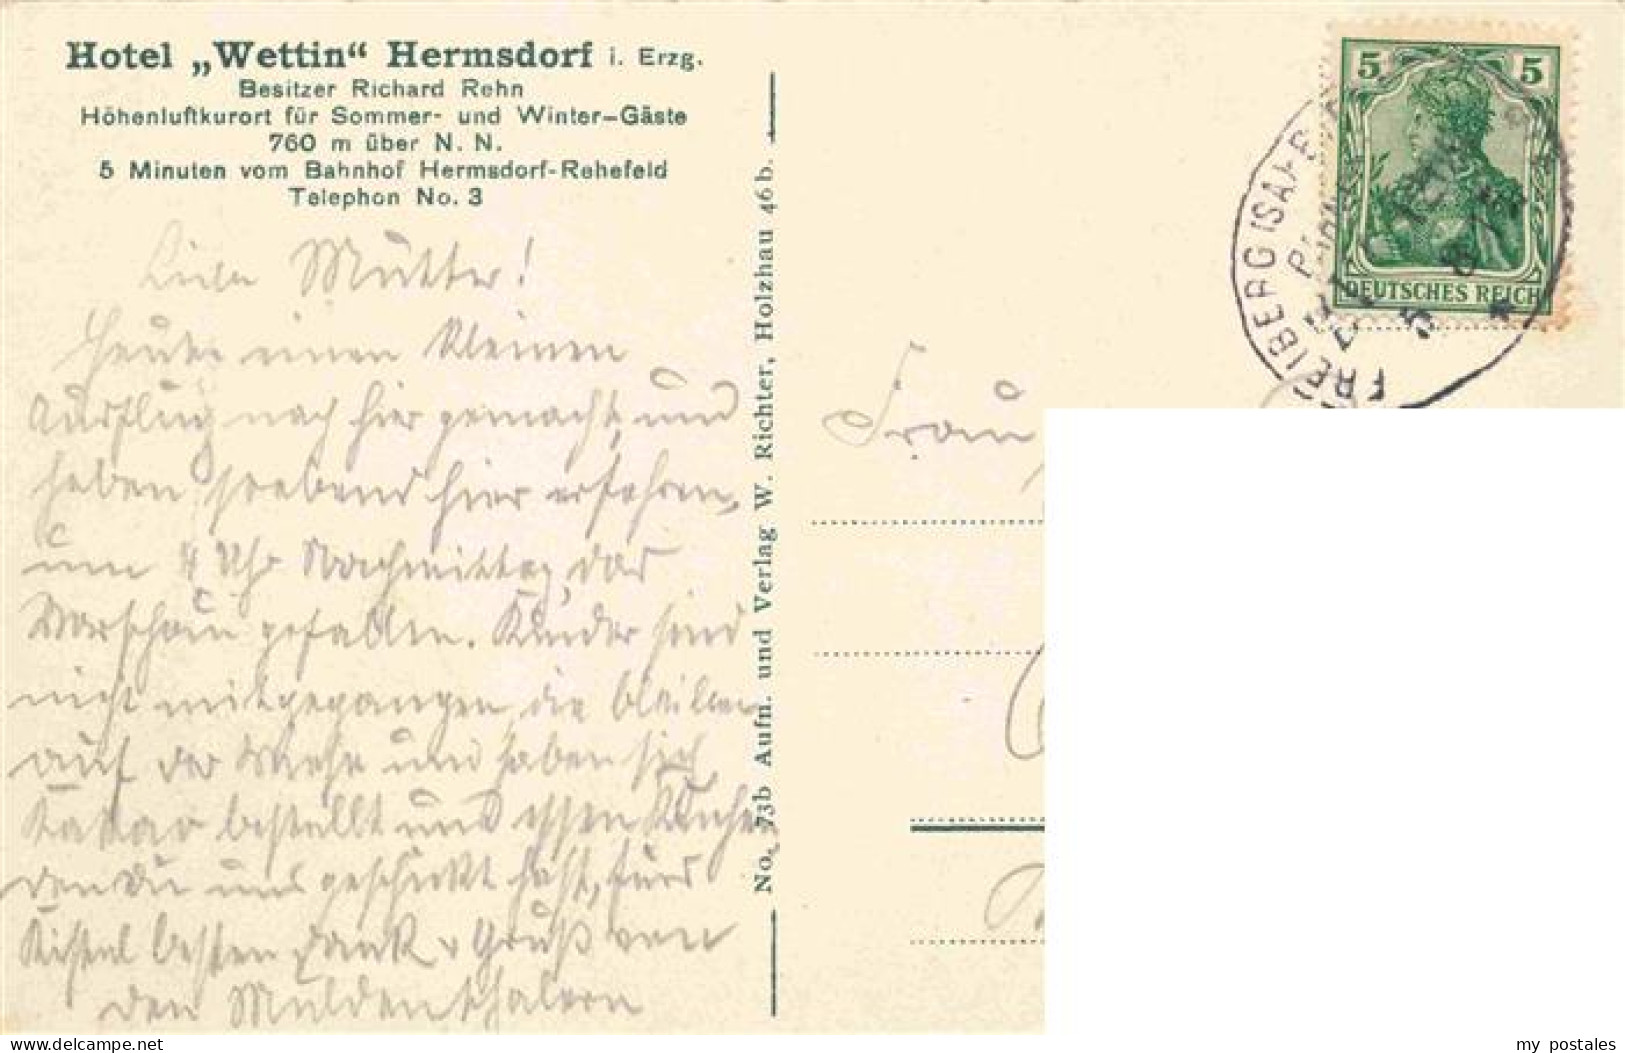 Hotel „Wettin“ Hermsdorf i. Erzg.
Besitzer Richard Rehn
Höhenluftkurort für Sommer- und Winter-Gäste
760 m über N. N.
5 Minuten vom Bahnhof Hermsdorf-Rehefeld
Telephon No. 3
Liebe Mutter!
Heute einen kleinen
Ausflug nach hier gemacht, und
haben soebend hier erfahren,
um 4 Uhr Nachmittag, das
Warschau gefallen. Kinder sind
nicht mitgegangen, die bleiben
auf der und haben sich
Kakao bestellt und essen Kuchen
den Du uns geschickt hast, fürs
Kistel besten Dank u Gruß von
den Muldenthalern
No. 73b Aufn. und Verlag W. Richter, Holzhau 46b.
5 5
DEUTSCHES REICH
FREIBERG (SA)
5 8
Frau
my postales
delcampe.net